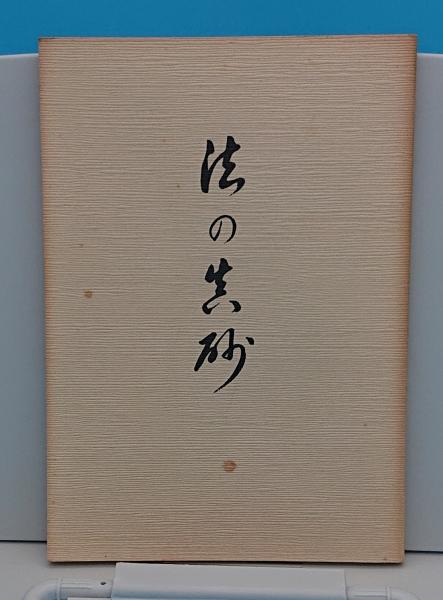 法の真砂